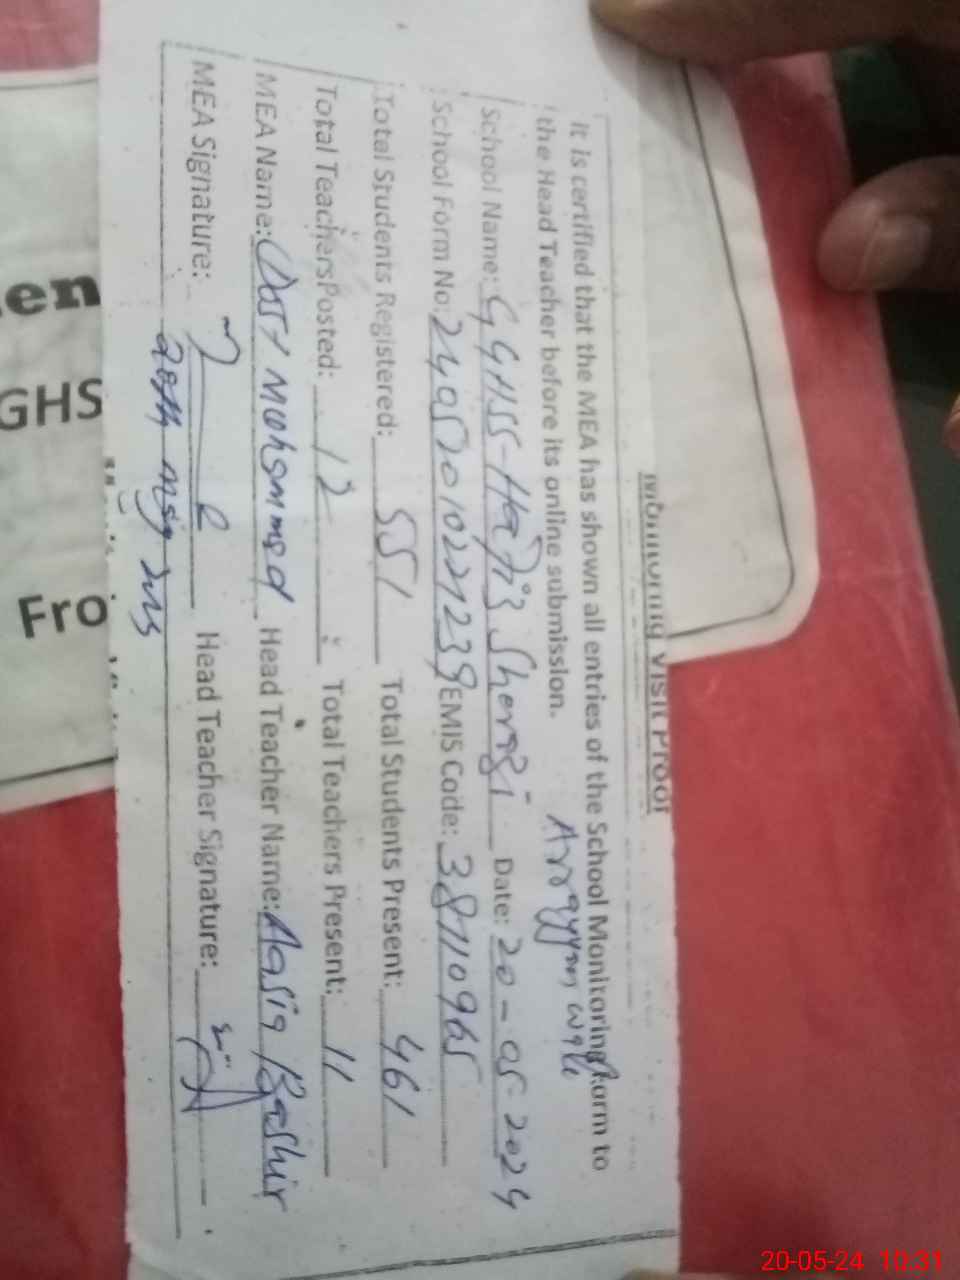 Monitoring Visit Proof
It is certified that the MEA has shown all entries of the School Monitoring Form to
the Head Teacher before its online submission.
School Name: GGHSS-Hafiz Sherazi Date: 20-05-2024
School Form No: 240520102221239 EMIS Code: 38110965
Total Students Registered: 551 Total Students Present: 461
Total Teachers Posted: 12 Total Teachers Present: 11
MEA Name: Dost Muhammad Head Teacher Name: Aasia Bashir
MEA Signature: Head Teacher Signature:
en
GHS
Fro
20-05-24 10:31